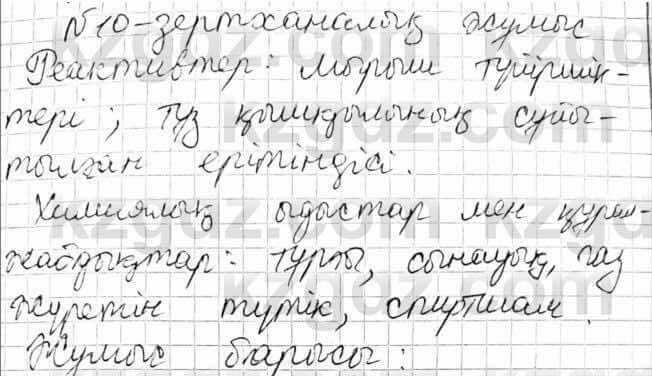 №10-зертханалық жұмыс
Реактивтер: мырыш түйіршік-
тері; тұз қышқылының сұйы-
тылған ерітіндісі.
Химиялық ыдыстар мен құрал-
жабдықтар: тұрғы, сынауық, газ
жүретін түтік, спиртшам.
Жұмыс барысы: